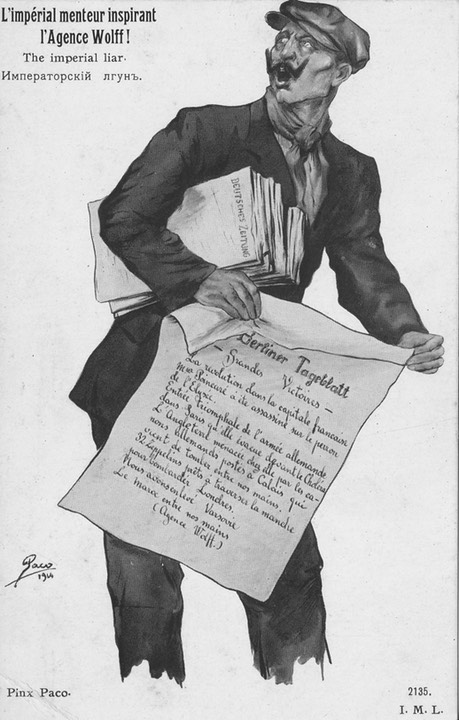 L'impérial menteur inspirant
l'Agence Wolff!
The imperial liar.
Императорскій лгунъ.
DEUTSCHES ZEITUNG
Berliner Tageblatt
— Grandes Victoires —
La révolution dans la capitale française
Mr Poincaré a été assassiné sur le perron
de l'Elysée.
Entrée triomphale de l'armée allemande
dans Paris qu'elle évacue devant le Choléra
L'Angleterre menacée chez elle par les ca-
nons allemands postés à Calais, qui
vient de tomber entre nos mains.
32 Zeppelins prêts à traverser la manche
pour bombarder Londres.
Nous avons enlevé Varsovie
Le Maroc entre nos mains
(Agence Wolff.)
Paco
1914
Pinx Paco.
2135.
I. M. L.